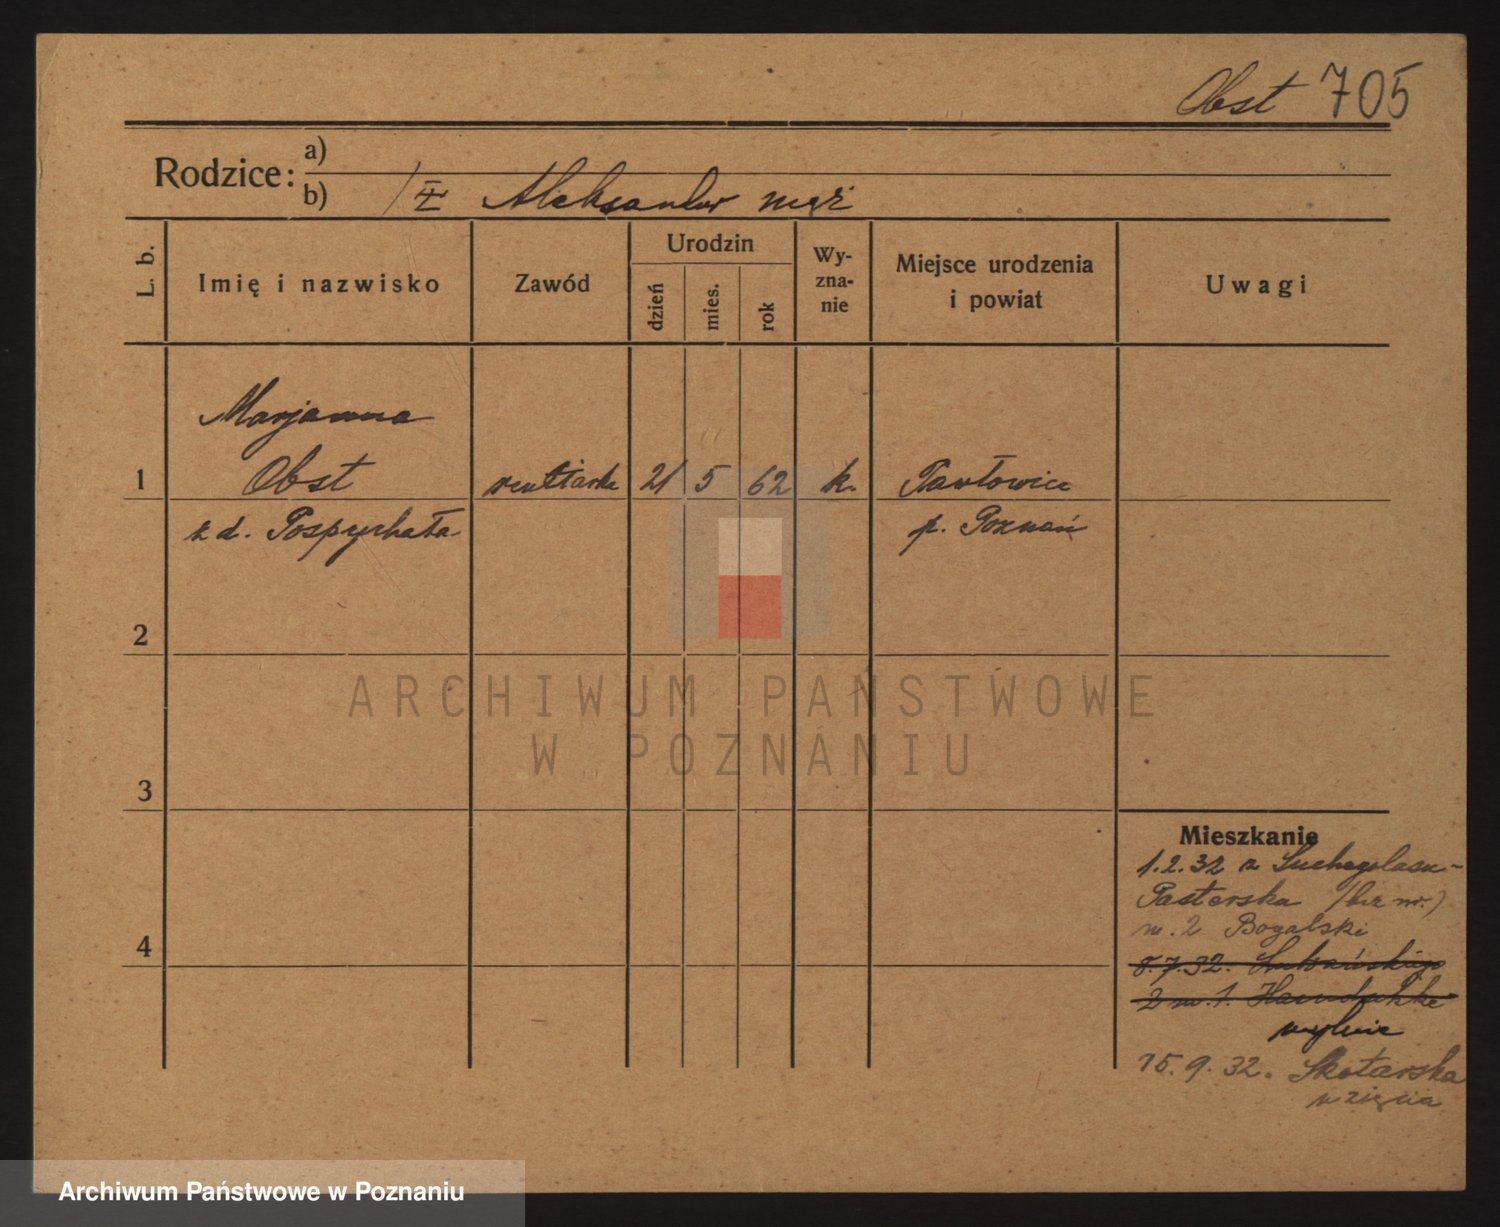 Obst 705
Rodzice: a)
b) / II Aleksander mąż
L. b.
Imię i nazwisko
Zawód
Urodzin
dzień
mies.
rok
Wy-
zna-
nie
Miejsce urodzenia
i powiat
Uwagi
Marjanna
1 Obst rentiarka 21 5 62 k. Pawłowice
z d. Pospychała p. Poznań
2
3
4
ARCHIWUM PAŃSTWOWE
W POZNANIU
Mieszkanie
1.2.32 z Suchegolasu -
Pasterska /bez nr.)
m. 2 Bogalski
8.7.32.
2 m. 1.
mylnie
15.9.32. Skotarska
u zięcia
Archiwum Państwowe w Poznaniu